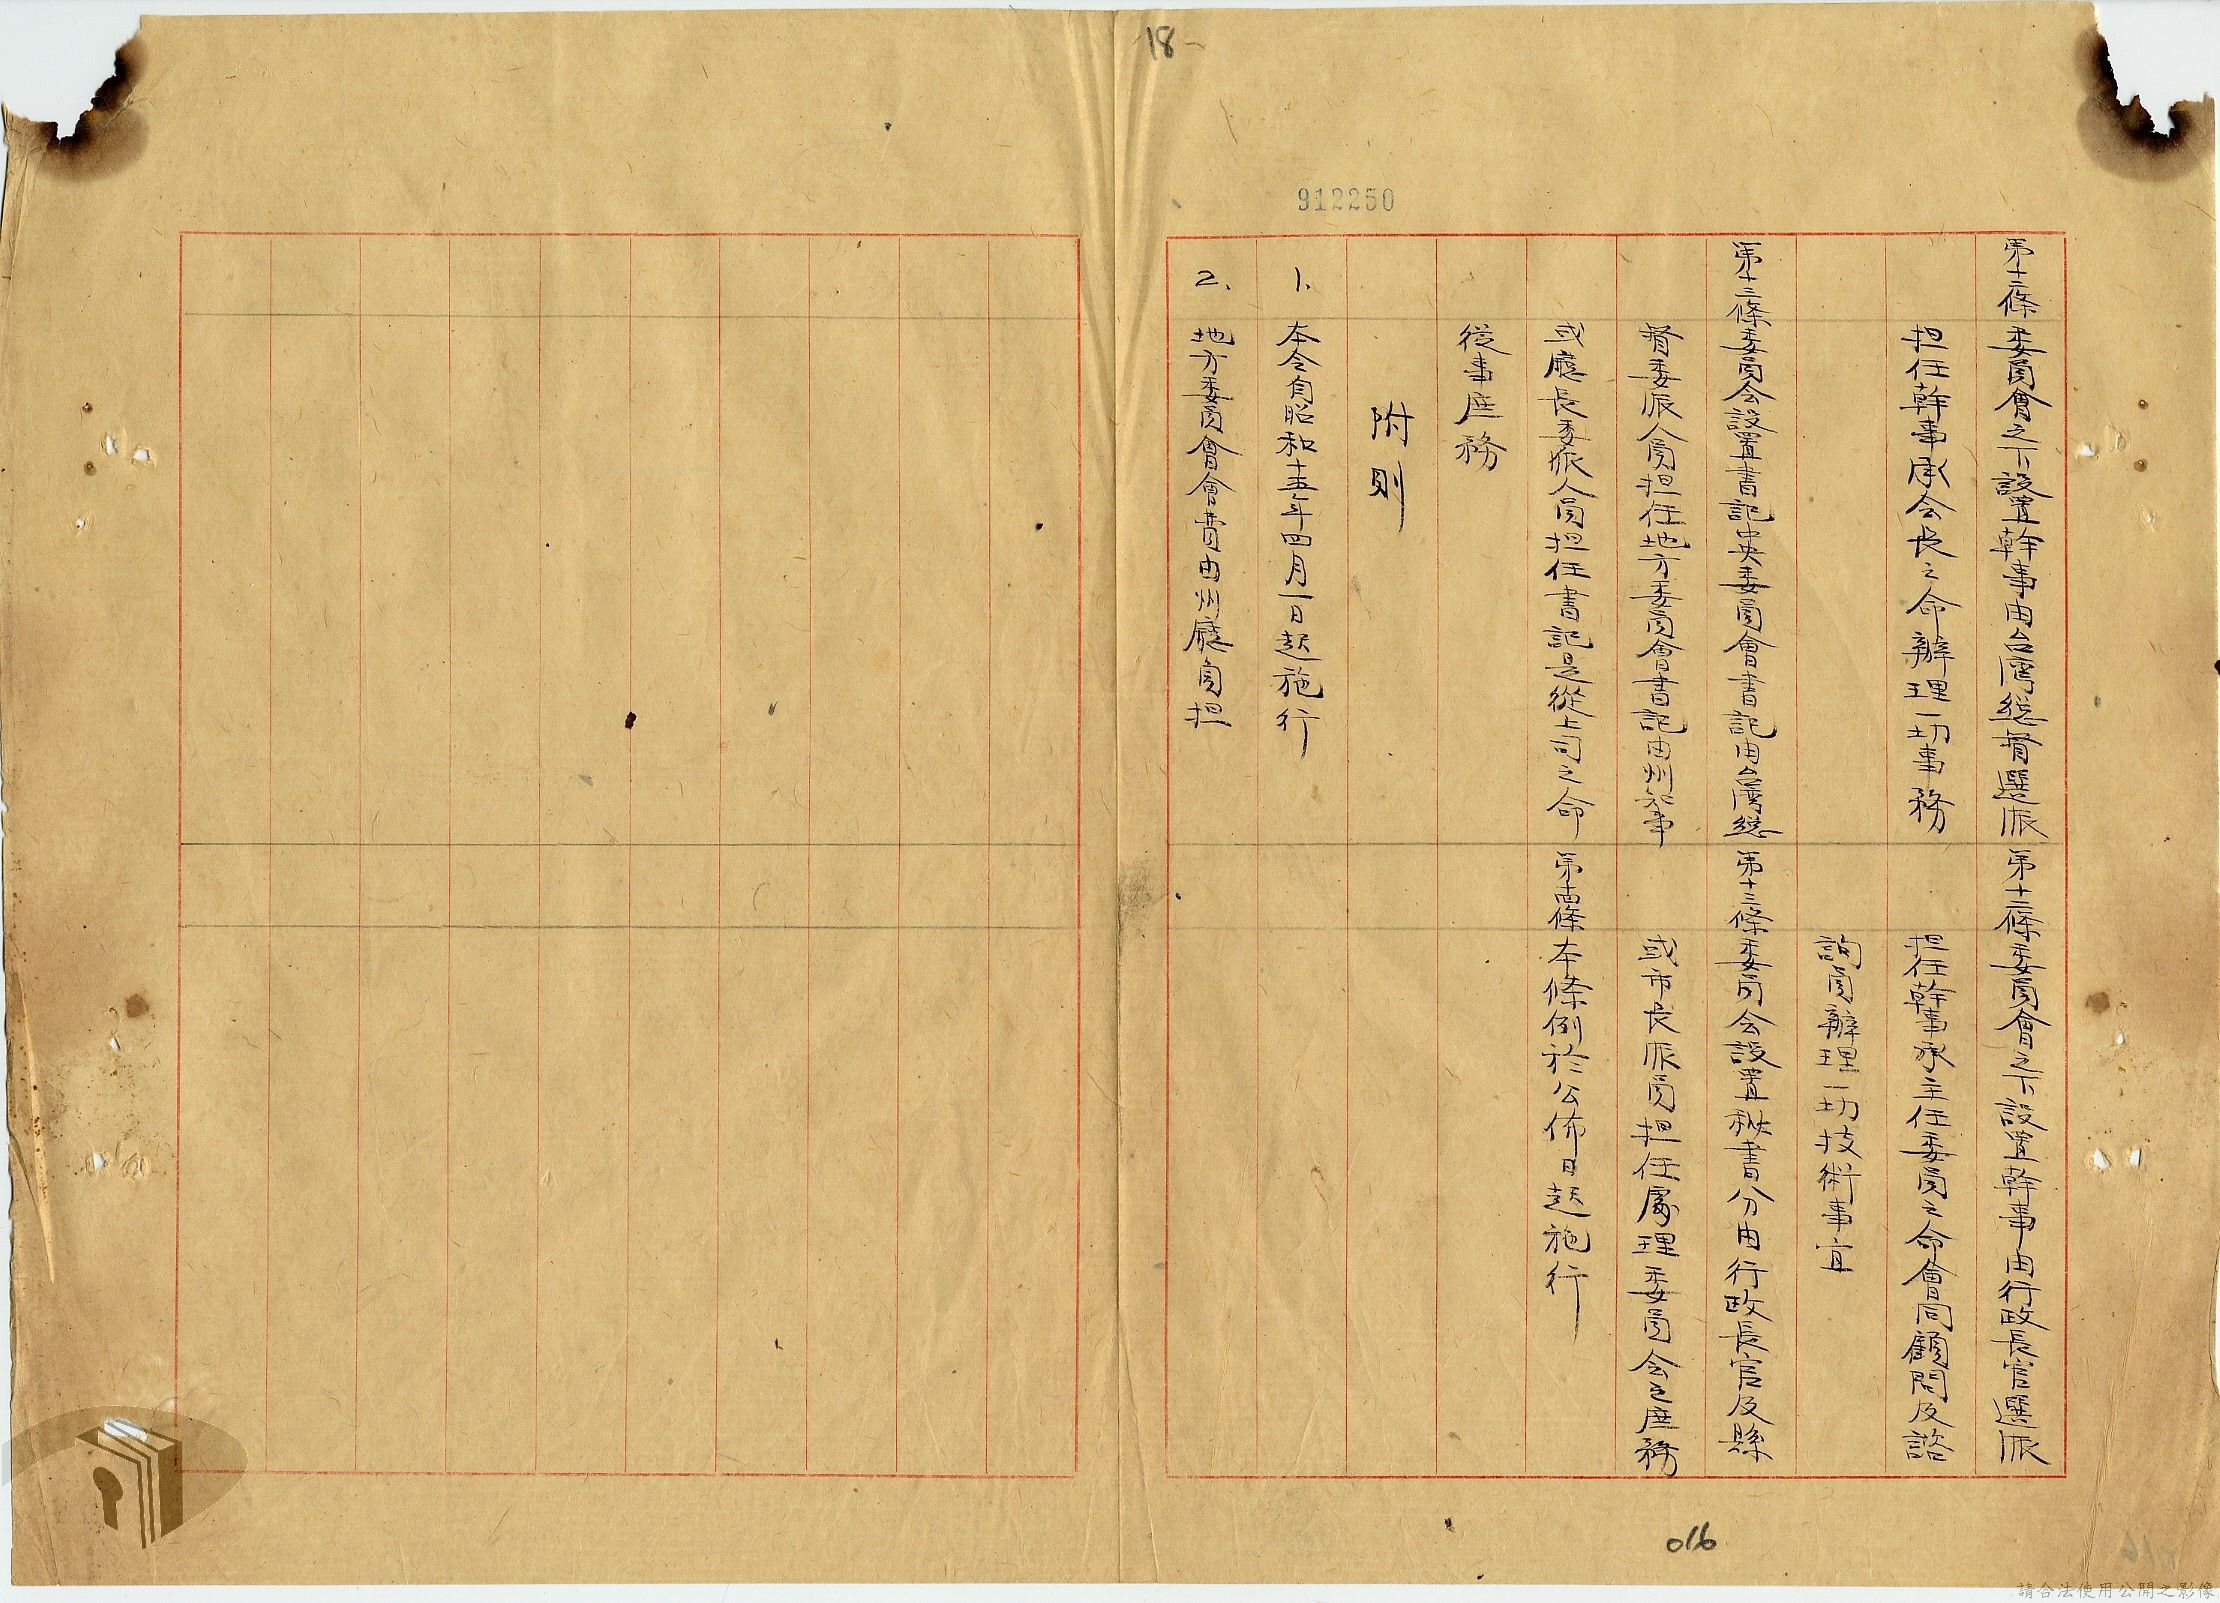 18
912250
第十二條 委員會之下設置幹事由台灣總督選派
担任幹事承会長之命辦理一切事務
第十三條委員会設置書記中央委員會書記由台灣總
督委派人員担任地方委員會書記由州知事
或廳長委派人員担任書記是從上司之命
從事庶務
附則
1、本令自昭和十五年四月一日起施行
2、地方委員會會費由州廳負担
第十二條委員會之下設置幹事由行政長官選派
担任幹事承主任委員之命會同顧問及諮
詢員辦理一切技術事宜
第十三條委員会設置秘書分由行政長官及縣
或市長派員担任處理委員会之庶務
第十四條本條例於公佈日起施行
016
請合法使用公開之影像